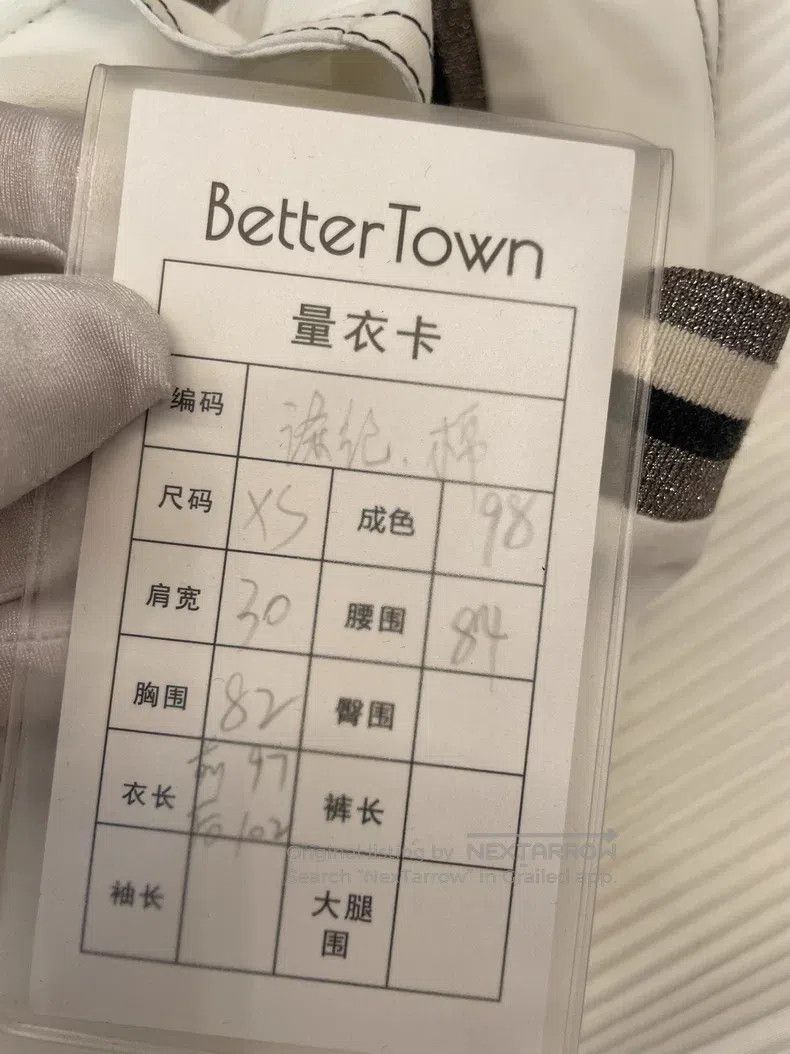 BetterTown
量衣卡
编码
尺码 XS 成色 98
肩宽 30 腰围 84
胸围 82 臀围
衣长 前97 后102 裤长
袖长 大腿围
Original listing by NEXTARROW
Search "NexTarrow" in Grailed app.